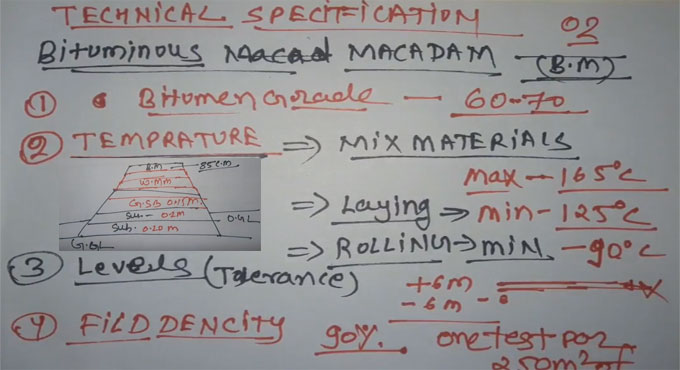 TECHNICAL SPECIFICATION
02
Bituminous Macad MACADAM (B.M)
① Bitumen Grade — 60-70
② TEMPRATURE ⇒ MIX MATERIALS
max - 165°C
⇒ Laying → min - 125°C
⇒ ROLLING → MIN. - 90°C
B.M
W.MM
G.S.B 0.15M
Sub - 0.2M
Sub. 0.20 M
③ Levels (Tolerance)
+6m
-6m
④ FILD DENCITY 90%. one test por
250m² of